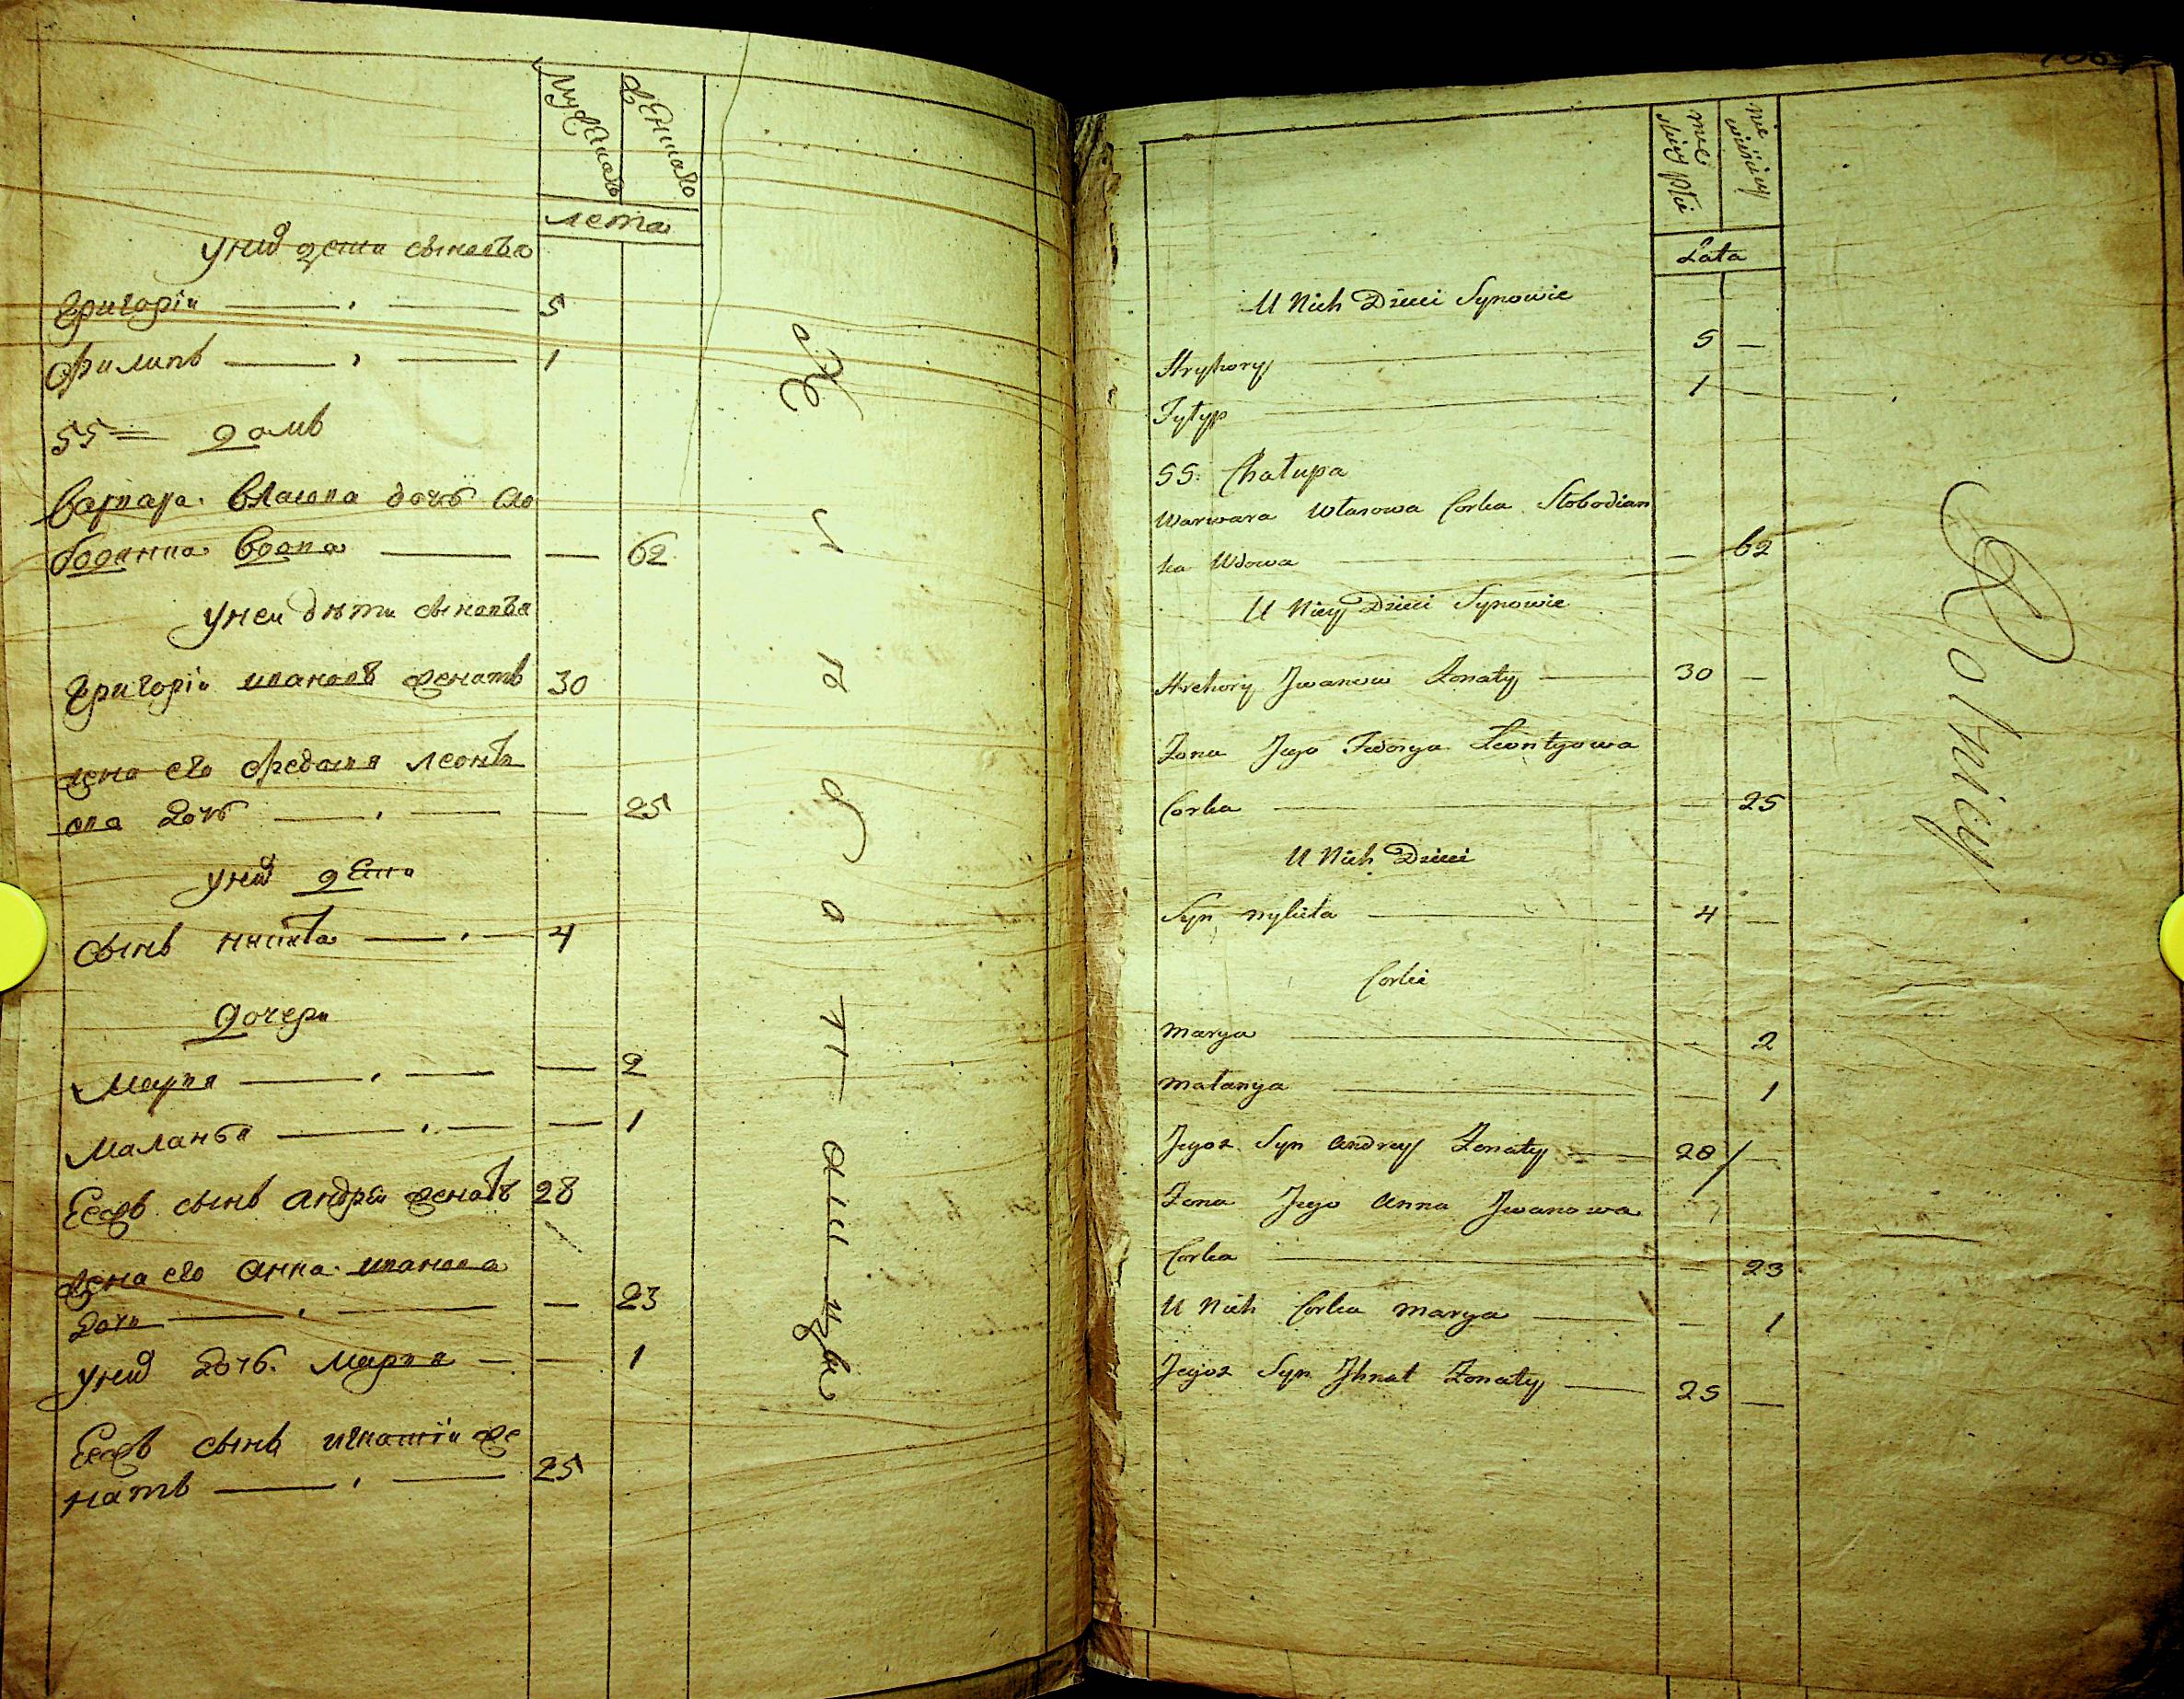 Мужеска
Женшаго
лета
унид дети сыновя
Григорiи 5
Филипъ 1
55 домъ
Варвара Власова дочь Сло
бодянка Вдова — 62
уней дѣти сыновя
Григорiи ивановъ женатъ 30
жена его Федосия леонть
ова дочь — 25
унид дети
Сынъ никита 4
дочери
Мария — 2
Маланья — 1
Еежъ сынъ андрей женатъ 28
жена его анна иванова
дочь — 23
унид дочь Мария — 1
Еежъ сынъ игнатiи же
натъ 25
mę
skiey płci
nie
wieściey
Lata
U Nich Dzieci Synowie
Hryhory 5 —
Fyłyp 1
55. Chałupa
Warwara Własowa Corka Słobodian
ka Wdowa — 62
U Niey Dzieci Synowie
Hrehory Jwanow Żonaty 30 —
Żona Jego Fedosya Leontyowa
Corka — 25
U Nich Dzieci
Syn Mykita 4 —
Corki
Marya — 2
Małanya — 1
Jeyoż Syn Andrey Żonaty 28 —
Żona Jego Anna Jwanowa
Corka — 23
U Nich Corka Marya — 1
Jeyoż Syn Jhnat Żonaty 25 —
Rolnicy